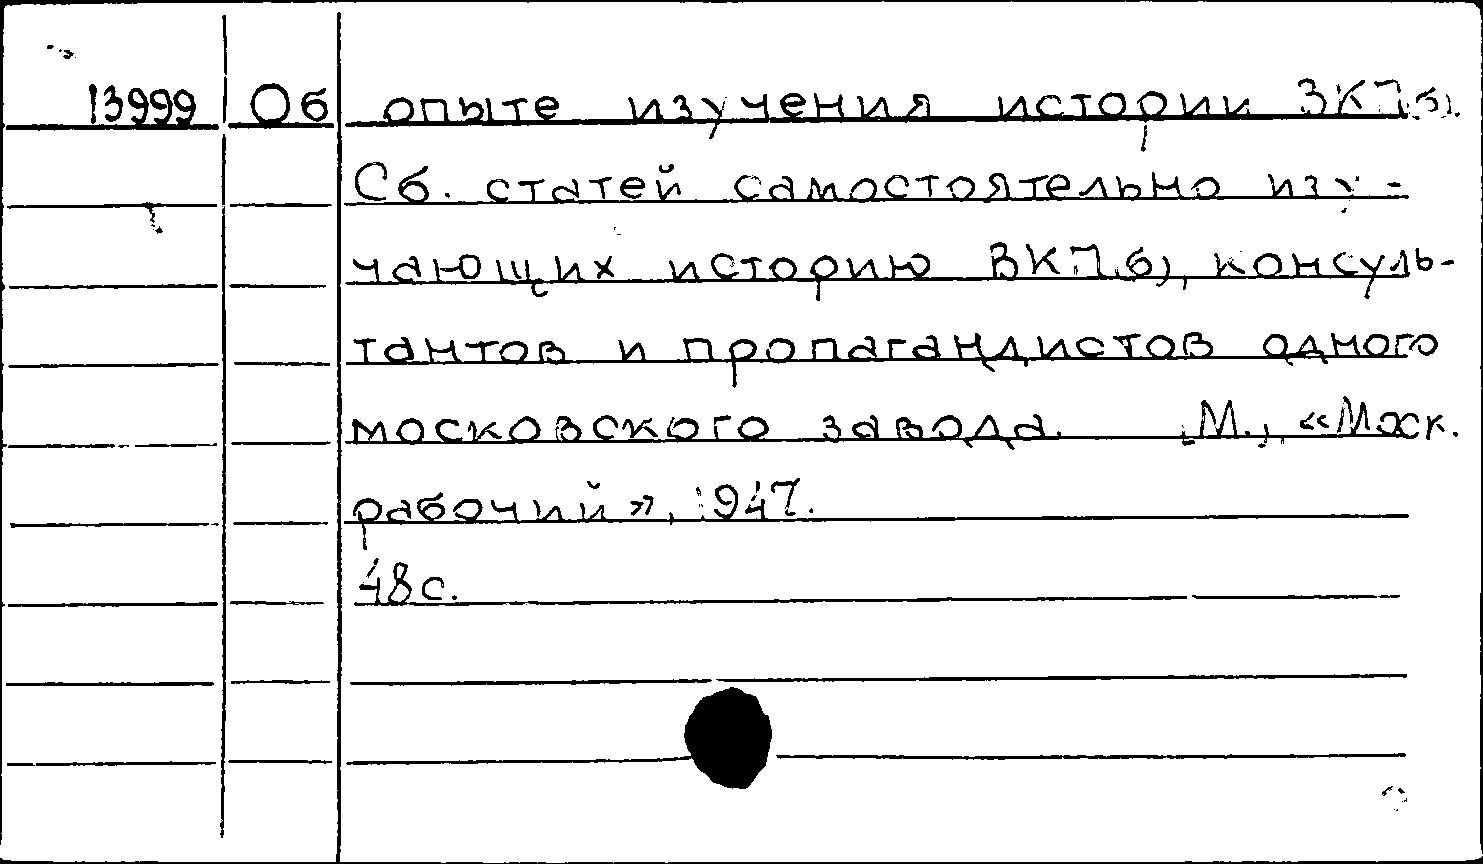 13999 Об опыте изучения истории ВКП(б).
Сб. статей самостоятельно изу-
чающих историю ВКП(б), консуль-
тантов и пропагандистов одного
московского завода. М., «Моск.
рабочий», 1947.
48 с.